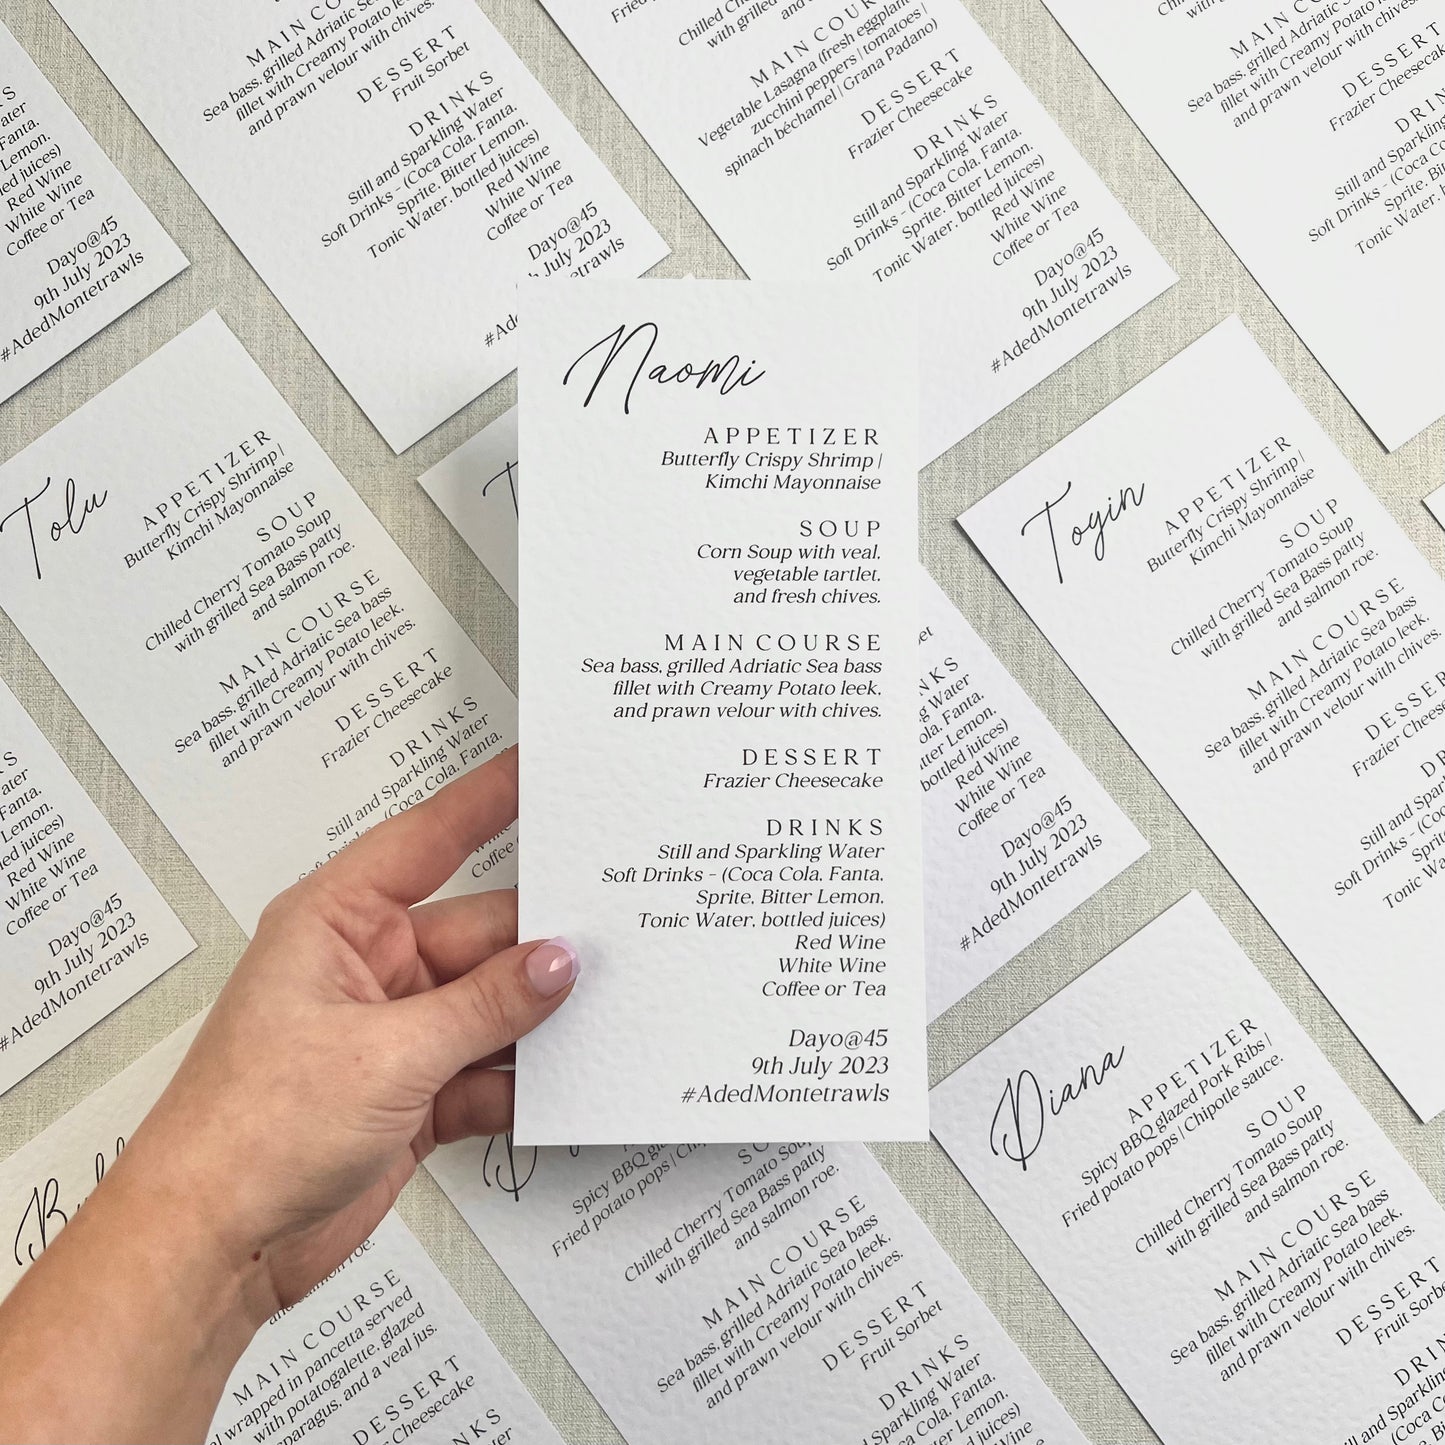 Naomi
APPETIZER
Butterfly Crispy Shrimp |
Kimchi Mayonnaise
SOUP
Corn Soup with veal,
vegetable tartlet,
and fresh chives.
MAIN COURSE
Sea bass, grilled Adriatic Sea bass
fillet with Creamy Potato leek,
and prawn velour with chives.
DESSERT
Frazier Cheesecake
DRINKS
Still and Sparkling Water
Soft Drinks - (Coca Cola, Fanta,
Sprite, Bitter Lemon,
Tonic Water, bottled juices)
Red Wine
White Wine
Coffee or Tea
Dayo@45
9th July 2023
#AdedMontetrawls
Red Wine
White Wine
Coffee or Tea
Dayo@45
9th July 2023
#AdedMontetrawls
MAIN COURSE
Sea bass, grilled Adriatic Sea bass
fillet with Creamy Potato leek,
and prawn velour with chives.
DESSERT
Fruit Sorbet
DRINKS
Still and Sparkling Water
Soft Drinks - (Coca Cola, Fanta,
Sprite, Bitter Lemon,
Tonic Water, bottled juices)
Red Wine
White Wine
Coffee or Tea
Dayo@45
9th July 2023
Chilled Cherry
with grilled
MAIN COURSE
Vegetable Lasagna (fresh eggplant
zucchini peppers | tomatoes |
spinach béchamel | Grana Padano)
DESSERT
Frazier Cheesecake
DRINKS
Still and Sparkling Water
Soft Drinks - (Coca Cola, Fanta,
Sprite, Bitter Lemon,
Tonic Water, bottled juices)
Red Wine
White Wine
Coffee or Tea
Dayo@45
9th July 2023
#AdedMontetrawls
MAIN COURSE
Sea bass, grilled Adriatic
fillet with Creamy Potato leek,
and prawn velour with chives.
DESSERT
Frazier Cheesecake
Still and Sparkling
Soft Drinks - (Coca Cola,
Sprite, Bitter
Tonic Water,
Tolu
APPETIZER
Butterfly Crispy Shrimp |
Kimchi Mayonnaise
SOUP
Chilled Cherry Tomato Soup
with grilled Sea Bass patty
and salmon roe.
MAIN COURSE
Sea bass, grilled Adriatic Sea bass
fillet with Creamy Potato leek,
and prawn velour with chives.
DESSERT
Frazier Cheesecake
DRINKS
Still and Sparkling Water
(Coca Cola, Fanta,
Togin
APPETIZER
Butterfly Crispy Shrimp |
Kimchi Mayonnaise
SOUP
Chilled Cherry Tomato Soup
with grilled Sea Bass patty
and salmon roe.
MAIN COURSE
Sea bass, grilled Adriatic Sea bass
fillet with Creamy Potato leek,
and prawn velour with chives.
Frazier
Still and Sparkling
Soft Drinks - (Coca
Sprite,
Tonic
Water
Fanta,
Lemon,
bottled juices)
Red Wine
White Wine
Coffee or Tea
Dayo@45
9th July 2023
#AdedMontetrawls
Red Wine
White Wine
Coffee or Tea
Dayo@45
9th July 2023
#AdedMontetrawls
Diana
APPETIZER
Spicy BBQ glazed Pork Ribs |
Fried potato pops | Chipotle sauce.
SOUP
Chilled Cherry Tomato Soup
with grilled Sea Bass patty
and salmon roe.
MAIN COURSE
Sea bass, grilled Adriatic Sea bass
fillet with Creamy Potato leek,
and prawn velour with chives.
DESSERT
Fruit Sorbet
Still and Sparkling
Soft Drinks - (Coca
Spicy BBQ
Fried potato pops |
Chilled Cherry Tomato
with grilled Sea Bass patty
and salmon roe.
MAIN COURSE
Sea bass, grilled Adriatic Sea bass
fillet with Creamy Potato leek,
and prawn velour with chives.
DESSERT
Fruit Sorbet
DRINKS
Still and Sparkling Water
(Coca Cola, Fanta,
Bitter Lemon,
bottled juices)
MAIN COURSE
wrapped in pancetta served
with potatogalette, glazed
and a veal jus.
DESSERT
Cheesecake